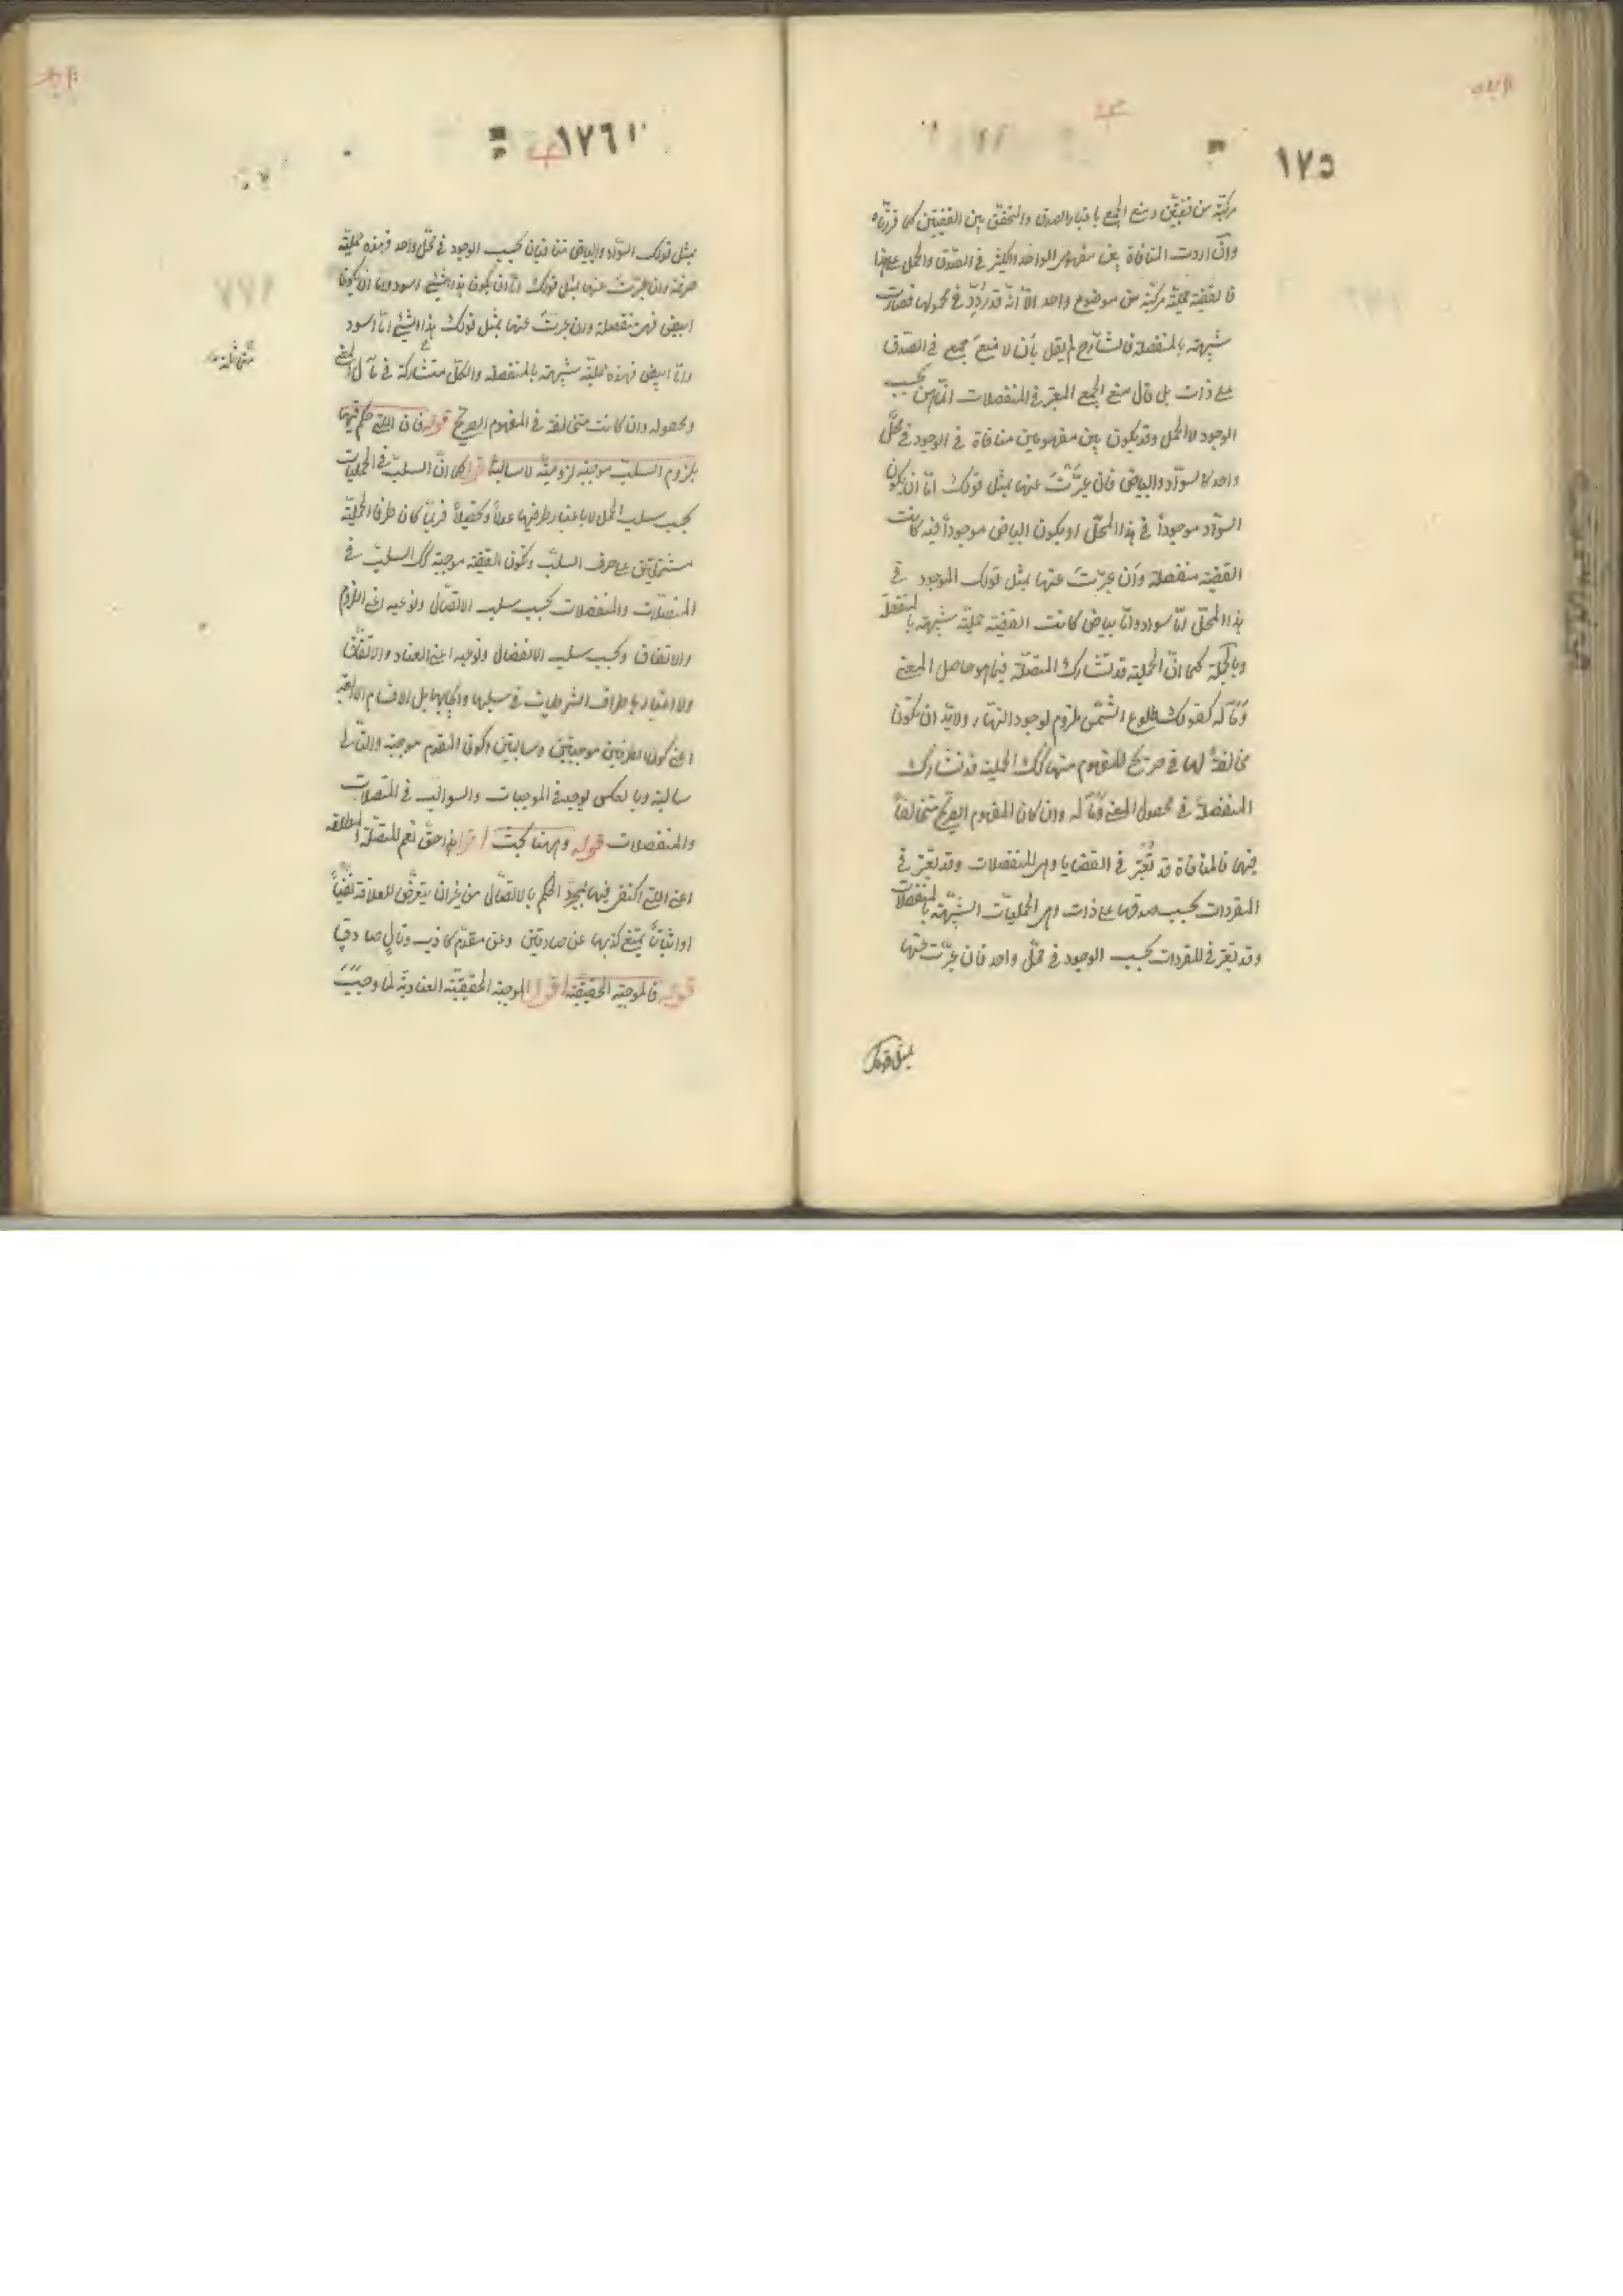 ١٧٥
مركبة من نقيضين ومنع الجمع باعتبار الصدق والتحقق بين القضيتين كما قررناه
وان اردت المنافاة بين مفهومى الواحد والكثير فى الصدق والحمل على ذات
فالقضية حملية مركبة من موضوع واحد الا انه قد ردد فى محمولها فصارت
شبيهة بالمنفصلة فالشارح لم يقل بأن لا منع جمع فى الصدق
على ذات بل قال منع الجمع المعتبر فى المنفصلات انما هو بحسب
الوجود لا الحمل وقد يكون بين مفهومين منافاة فى الوجود فى محل
واحد كالسواد والبياض فان عبرت عنها بمثل قولك اما ان يكون
السواد موجوداً فى هذا المحل او يكون البياض موجوداً فيه كانت
القضية منفصلة وان عبرت عنها بمثل قولك الموجود فى
هذا المحل اما سواد واما بياض كانت القضية حملية شبيهة بالمنفصلة
وبالجملة كما ان الحملية قد تشارك المتصلة فيما هو حاصل المعنى
ومآله كقولك طلوع الشمس ملزوم لوجود النهار ولابد ان تكون
مخالفة لها فى صريح المفهوم منها كك الحملية قد تشارك
المنفصلة فى محصول المعنى ومآله وان كان المفهوم الصريح متخالفاً
فيها فالمنافاة قد تعتبر فى القضايا وهى المنفصلات وقد تعتبر فى
المفردات بحسب صدقها على ذات وهى الحمليات الشبيهة بالمنفصلات
وقد تعتبر فى المفردات بحسب الوجود فى محل واحد فان عبرت عنها
بمثل قولك
١٧٦
بمثل قولك السواد والبياض متنافيان بحسب الوجود فى محل واحد فهذه حملية
صرفة وان عبرت عنها بمثل قولك اما ان يكون هذا الشئ اسود واما ان يكون
ابيض فهى منفصلة وان عبرت عنها بمثل قولك هذا الشئ اما اسود
واما ابيض فهذه حملية شبيهة بالمنفصلة والكل متشاركة فى مآل المعنى
ومحصوله وان كانت متخالفة فى المفهوم الصريح قوله فان التى حكم فيها
بلزوم السلب موجبة لزومية لا سالبة اقول كما ان السلب فى الحمليات
بحسب سلب الحمل لا باعتبار طرفيها عدلاً وتحصيلاً فربما كان طرفا الحملية
مشتملين على حرف السلب وتكون القضية موجبة كك السلب فى
المتصلات والمنفصلات بحسب سلب الاتصال ونوعيه اعنى اللزوم
والاتفاق وبحسب سلب الانفصال ونوعيه اعنى العناد والاتفاق
ولا اعتبار باطراف الشرطيات فى سلبها وايجابها بل الاقسام الاربعة
اعنى كون الطرفين موجبتين وسالبتين وكون المقدم موجبة والتالى
سالبة وبالعكس يوجد فى الموجبات والسوالب فى المتصلات
والمنفصلات قوله وههنا بحث اقول هذا حق نعم المتصلة المطلقة
اعنى التى اكتفى فيها بمجرد الحكم بالاتصال من غير ان يتعرض للعلاقة نفياً
او اثباتاً يمتنع كذبها عن صادقين وعن مقدم كاذب وتال صادق
قوله فالموجبة الحقيقية اقول الموجبة الحقيقية العنادية لما وجبت